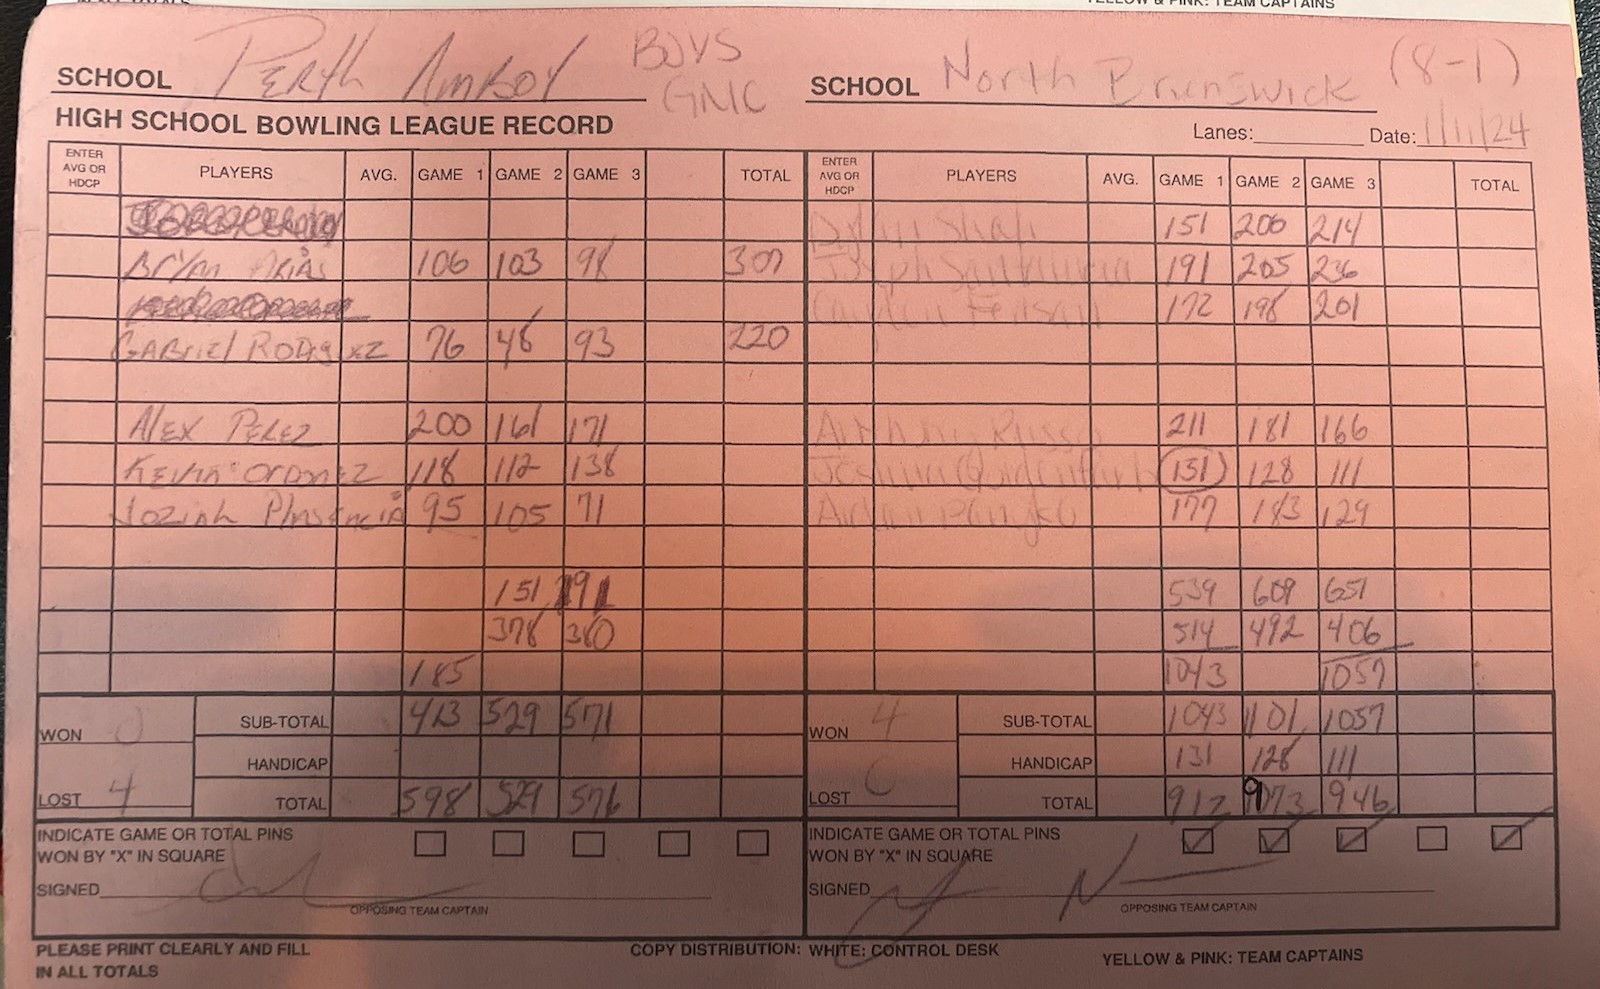 YELLOW & PINK: TEAM CAPTAINS
SCHOOL Perth Amboy BOYS GMC SCHOOL North Brunswick (8-1)
HIGH SCHOOL BOWLING LEAGUE RECORD Lanes: Date: 1/11/24
ENTER AVG OR HDCP PLAYERS AVG. GAME 1 GAME 2 GAME 3 TOTAL ENTER AVG OR HDCP PLAYERS AVG. GAME 1 GAME 2 GAME 3 TOTAL
151 200 214
Bryan Arias 106 103 98 307 191 205 236
172 198 201
Gabriel Rodriguez 76 48 93 220
Alex Perez 200 161 171 Anthony Russo 211 181 166
Kevin Ordonez 118 112 138 131 128 111
Joziah Plasencia 95 105 71 177 183 129
151 191 539 609 651
378 380 514 492 406
185 1043 1057
WON 0 SUB-TOTAL 413 529 571 WON 4 SUB-TOTAL 1043 1101 1057
HANDICAP HANDICAP 131 128 111
LOST 4 TOTAL 598 529 576 LOST 0 TOTAL 912 973 946
INDICATE GAME OR TOTAL PINS WON BY "X" IN SQUARE INDICATE GAME OR TOTAL PINS WON BY "X" IN SQUARE
SIGNED SIGNED
OPPOSING TEAM CAPTAIN OPPOSING TEAM CAPTAIN
PLEASE PRINT CLEARLY AND FILL IN ALL TOTALS COPY DISTRIBUTION: WHITE: CONTROL DESK YELLOW & PINK: TEAM CAPTAINS